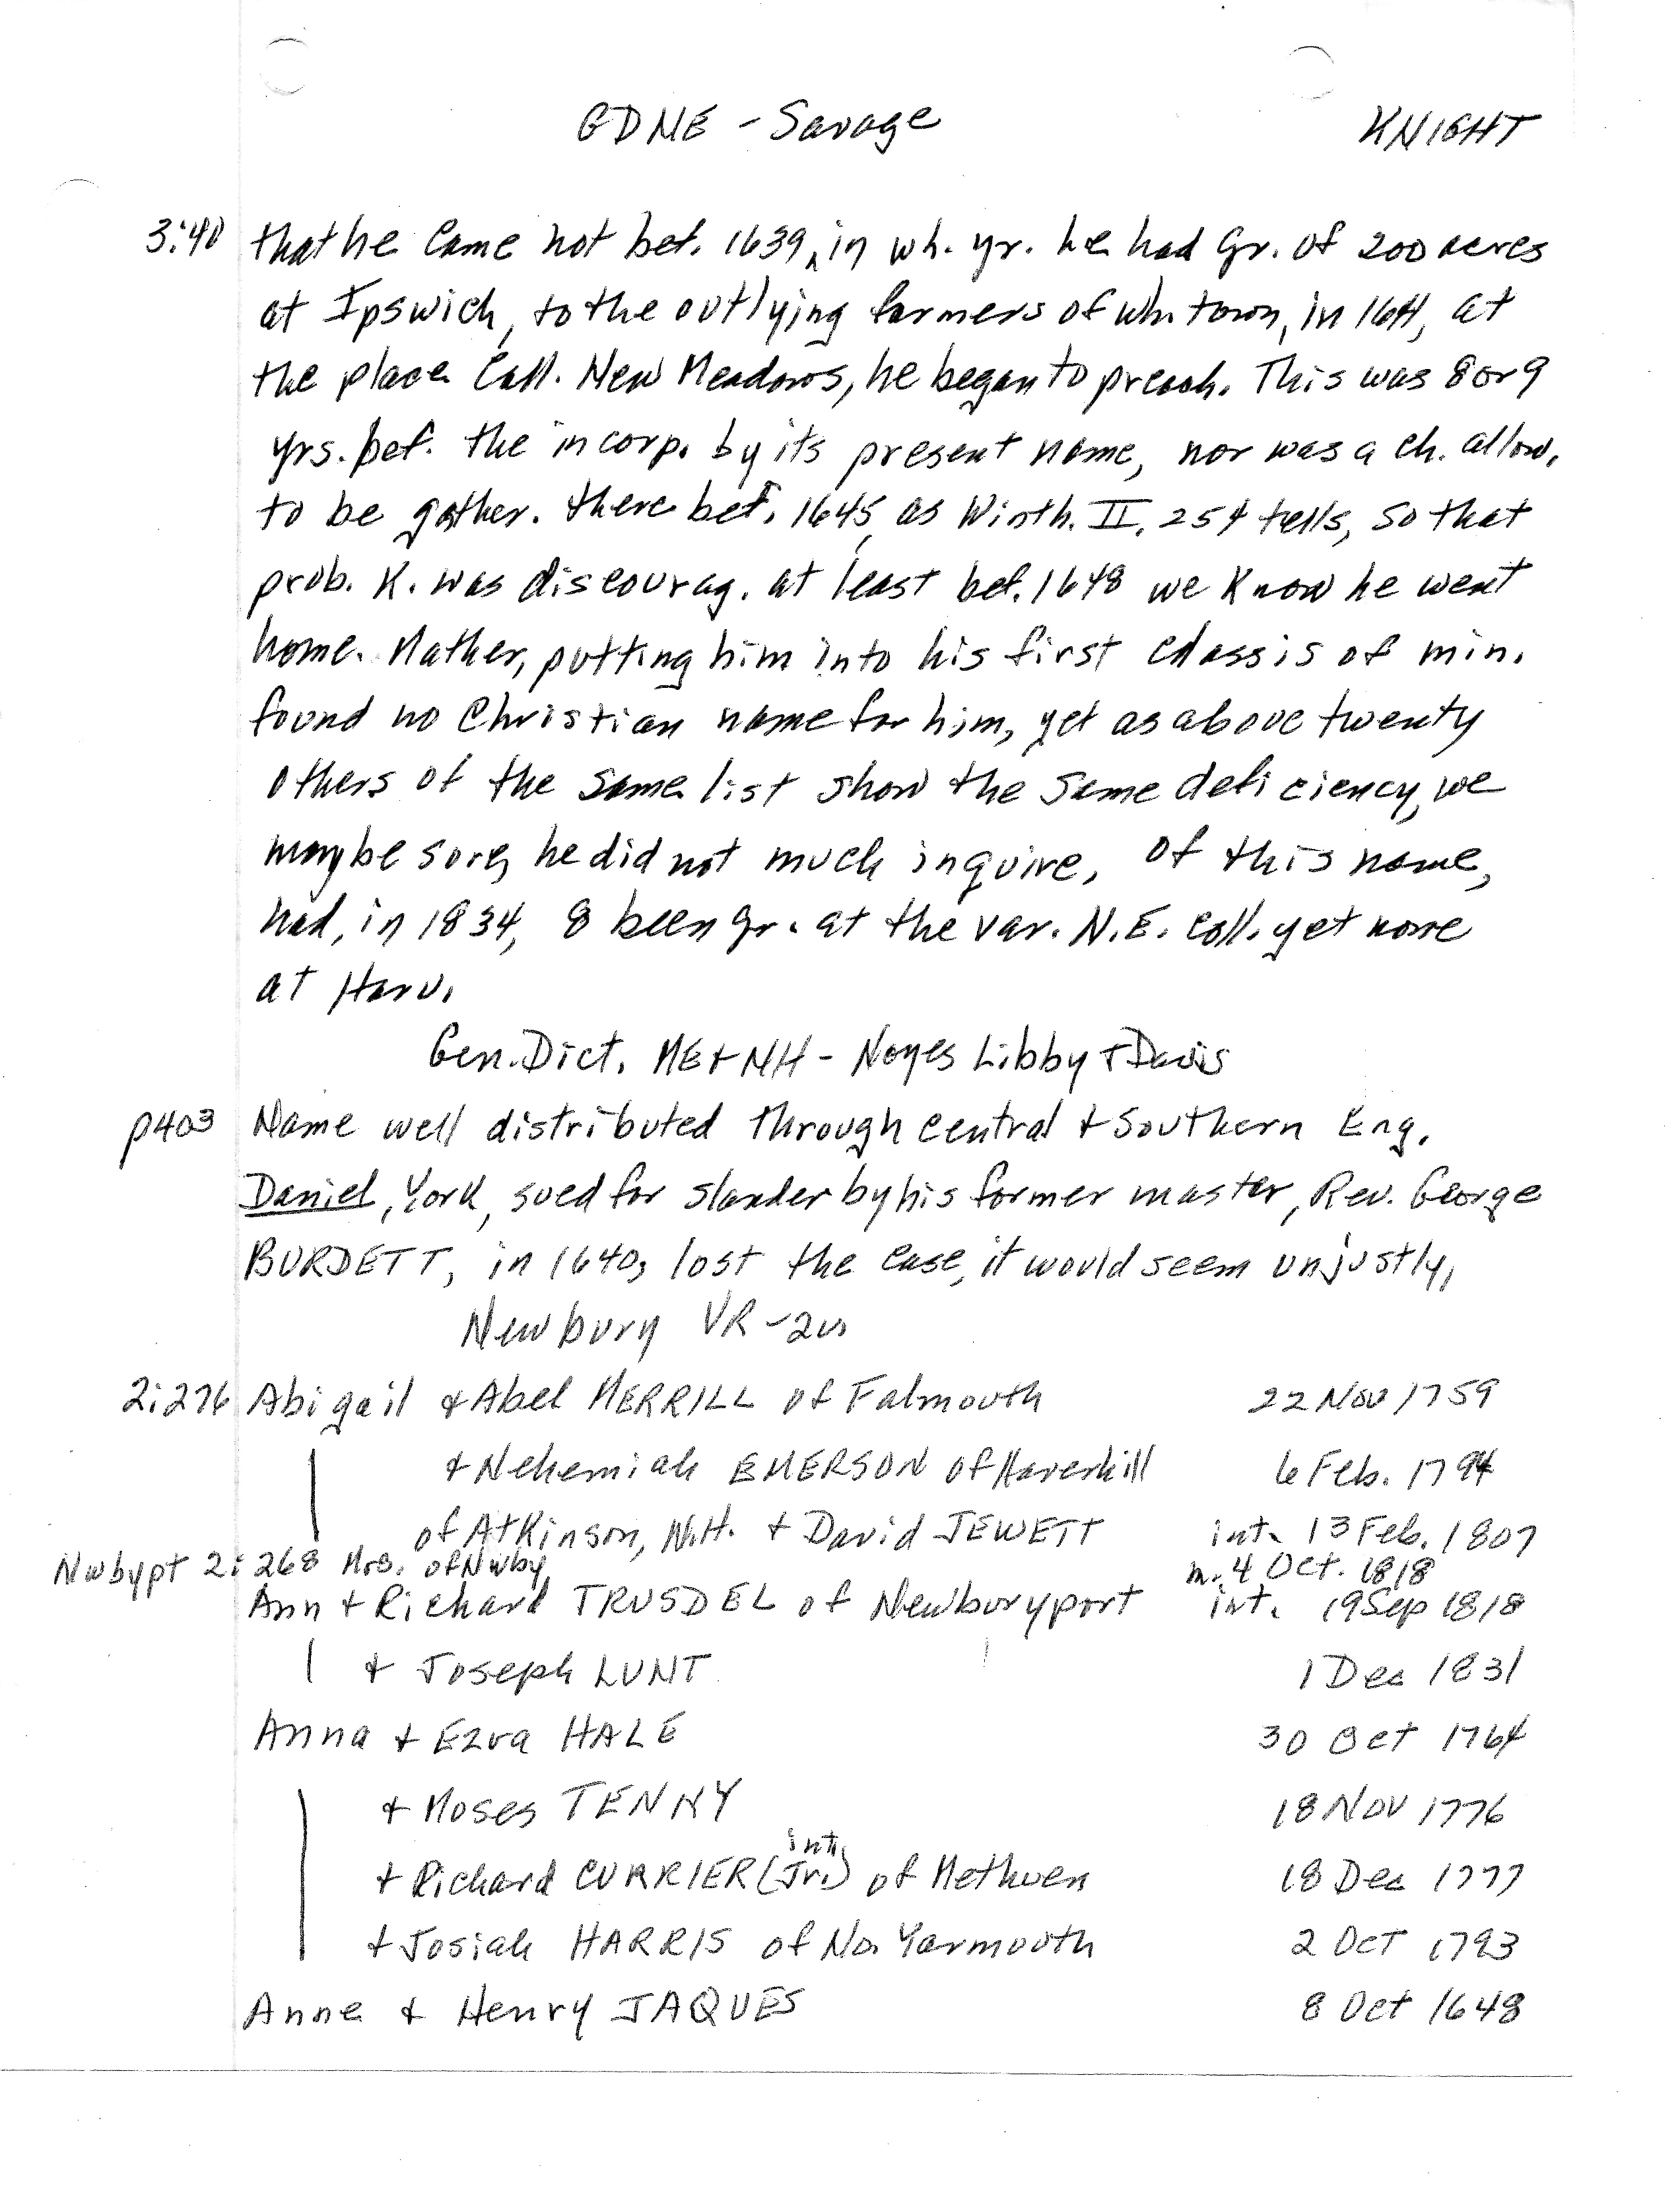 GDNE - Savage KNIGHT
3:40 that he came not bef. 1639, in wh. yr. he had gr. of 200 acres
at Ipswich, to the outlying farmers of wh. town, in 1641, at
the place call. New Meadows, he began to preach. This was 8 or 9
yrs. bef. the incorp. by its present name, nor was a ch. allow.
to be gather. there bef. 1645, as Winth. II. 254 tells, so that
prob. K. was discourag. at least bef. 1648 we know he went
home. Mather, putting him into his first classis of min.
found no Christian name for him, yet as above twenty
others of the same list show the same deficiency, we
may be sure, he did not much inquire. Of this name,
had, in 1834, 8 been gr. at the var. N.E. coll. yet none
at Harv.
Gen. Dict. ME + NH - Noyes Libby + Davis
p403 Name well distributed through central + southern Eng.
Daniel, York, sued for slander by his former master, Rev. George
BURDETT, in 1640, lost the case, it would seem unjustly.
Newbury VR - 2
2:276 Abigail + Abel MERRILL of Falmouth 22 Nov 1759
+ Nehemiah EMERSON of Haverhill 6 Feb. 1794
of Atkinson, N.H. + David JEWETT int. 13 Feb. 1807
Nwbypt 2:268 Mrs. of Nwby m. 4 Oct. 1818
Ann + Richard TRUSDEL of Newburyport int. 19 Sep 1818
+ Joseph LUNT 1 Dec 1831
Anna + Ezra HALE 30 Oct 1764
+ Moses TENNY 18 Nov 1776
int.
+ Richard CURRIER (Jr.) of Methuen 18 Dec 1777
+ Josiah HARRIS of No. Yarmouth 2 Oct 1793
Anne + Henry JAQUES 8 Oct 1648